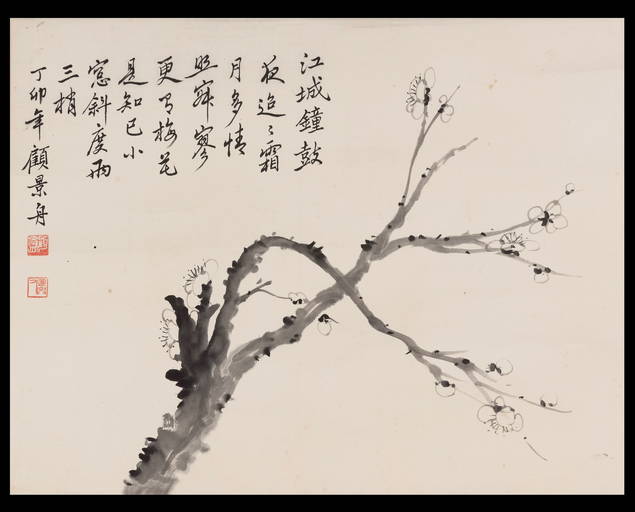 江城鐘鼓
夜迢〻霜
月多情
照寂寥
更有梅花
是知己小
窓斜度兩
三梢
丁卯年顧景舟